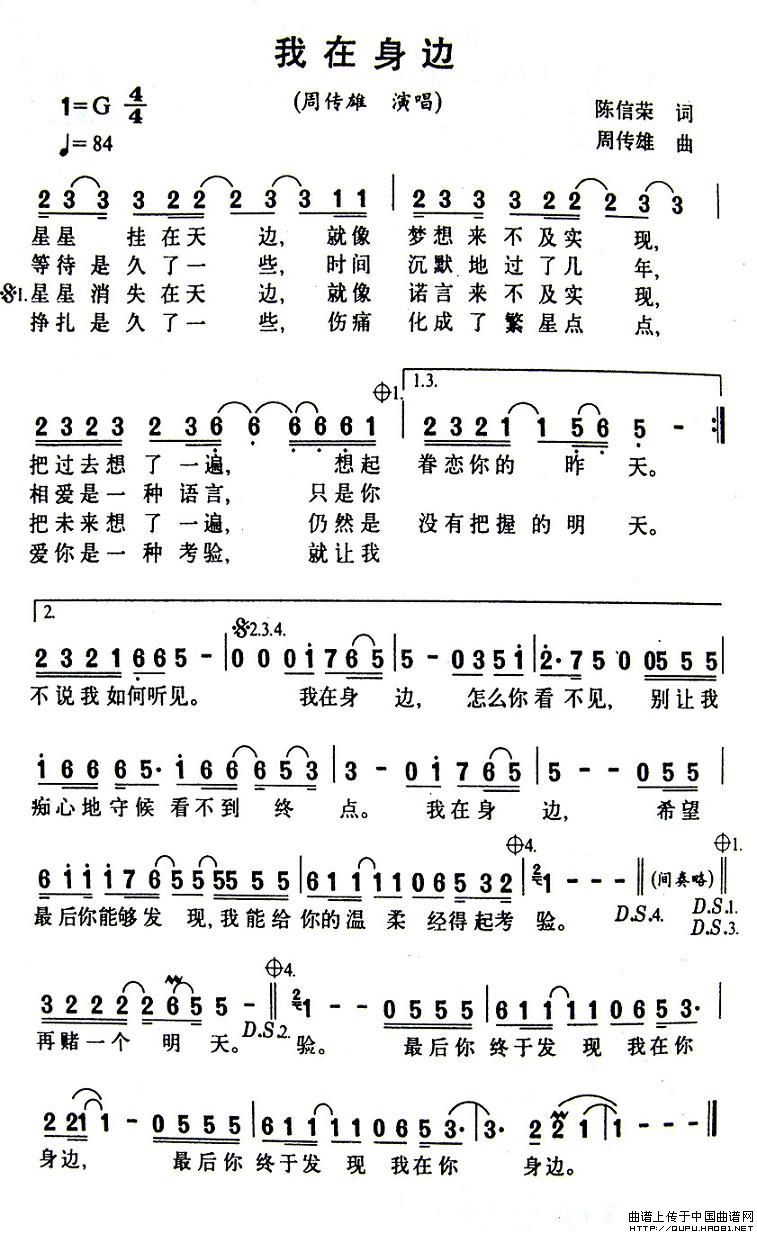 我在身边
(周传雄 演唱)
1=G 4/4
♩=84
陈信荣 词
周传雄 曲
2 3 3 3 2 2 2 3 3 1 1 | 2 3 3 3 2 2 2 3 3 |
星星 挂在天 边, 就像 梦想来不及实 现,
等待是久了一 些, 时间 沉默地过了几 年,
𝄋1.星星消失在天 边, 就像 诺言来不及实 现,
挣扎是久了一 些, 伤痛 化成了繁星点 点,
𝄌1. 1.3.
2 3 2 3 2 3 6 6 6 6 6 1 | 2 3 2 1 1 5 6 5 - :|
把过去想了一遍, 想起 眷恋你的 昨 天。
相爱是一种语言, 只是你
把未来想了一遍, 仍然是 没有把握的明 天。
爱你是一种考验, 就让我
2. 𝄋2.3.4.
2 3 2 1 6 6 5 - | 0 0 0 1 7 6 5 | 5 - 0 3 5 1 | 2· 7 5 0 0 5 5 5
不说我如何听见。 我在身 边, 怎么你看不见, 别让我
1 6 6 6 5· 1 6 6 6 5 3 | 3 - 0 1 7 6 5 | 5 - - 0 5 5 |
痴心地守候 看不到 终 点。 我在身 边, 希望
𝄌4. 𝄌1.
6 1 1 1 7 6 5 5 5 5 5 5 | 6 1 1 1 1 0 6 5 3 2 | 2 1 - - - ‖ (间奏略) ‖
最后你能够发 现,我能给你的温 柔 经得起考 验。 D.S.4. D.S.1.
D.S.3.
𝄌4.
3 2 2 2 2 2 6 5 5 - ‖ 2 1 - - 0 5 5 5 | 6 1 1 1 1 0 6 5 3· |
再赌一个 明 天。D.S.2. 验。 最后你 终于发 现 我在你
2 2 1 1 - 0 5 5 5 | 6 1 1 1 1 0 6 5 3· | 3· 2 2 1 1 - - ‖
身边, 最后你 终于发 现 我在你 身边。
曲谱上传于中国曲谱网
HTTP://QUPU.HAO81.NET